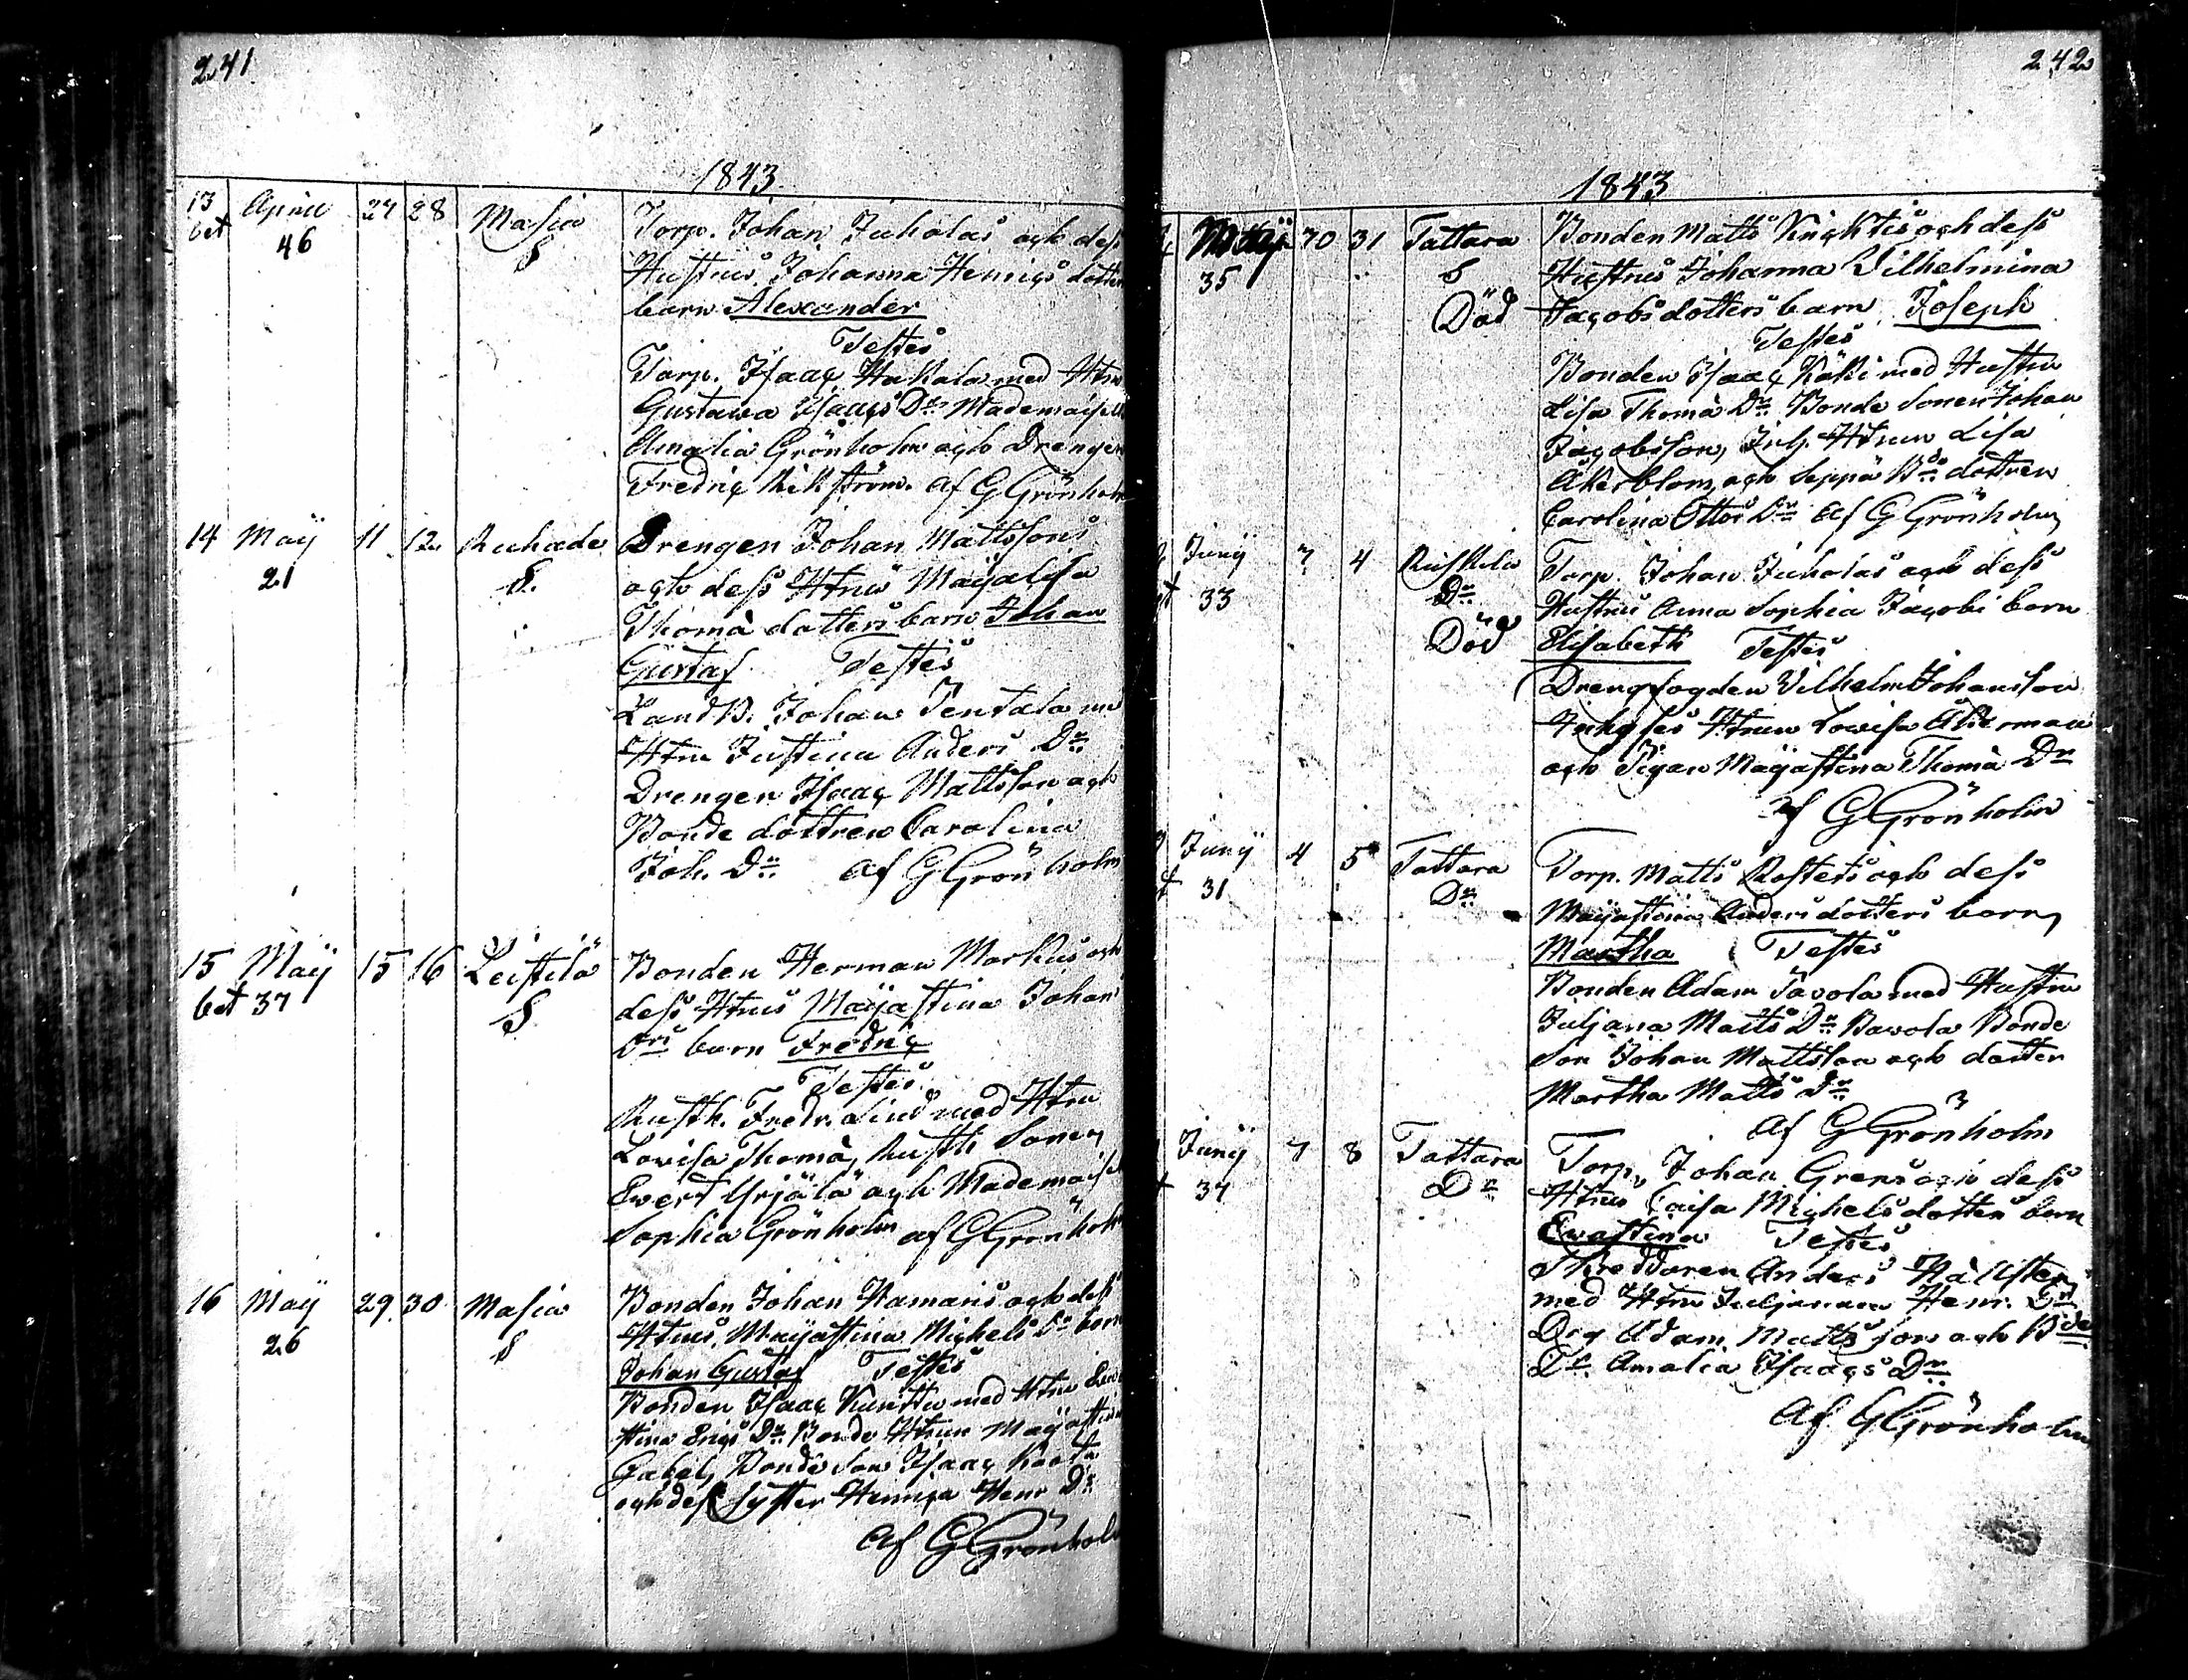 241
1843
13 April 27 28 Masia Torp. Johan Juholas och dess
bet 46 S Hustrus Johanna Henrics dotter
barn Alexander
Testes
Torp. Isaac Hakala med Htru
Gustawa Isaacs Dr Mademaisell
Amalia Grönholm och Drengen
Fredric Wikström. af G Grönholm
14 Maij 11 12 Drengen Johan Mattssons
21 S. och dess Htrus Majalisa
Thomä dotters barn Johan
Gustaf Testes
Landb. Johan Tentala med
Htru Justina Anders Dr
Drengen Isaac Mattsson och
Bonde dottren Carolina
Joh. Dr af G Grönholm
15 Maij 15 16 Leistilä Bonden Herman Markus och
bet 37 S dess Htrus Maijastina Johan
Drs barn Fredric
Testes
Rusth. Fredr. Lind med Htru
Lovisa Thomä, Rusth Sonen
Evert Yrjälä och Mademaisell
Sophia Grönholm af G Grönholm
16 Maij 29 30 Masia Bonden Johan Hamaris och dess
26 S Htrus Maijastina Michels Dr barn
Johan Gustaf Testes
Bonden Isaac Kunttu med Htru
stina Erics Dr Bonde Htrun Majastina
Gabel, Bonde Son Isaac
och dess Syster Henrica Henr Dr
af G Grönholm
242
1843
Maij 30 31 Tattara Bonden Matts och dess
35 S Hustrus Johanna Wilhelmina
Död Jacobs dotters barn Joseph
Testes
Bonden Isaac Käki med Hustru
Lisa Thomä Dr Bonde Sonen Johan
Jacobsson, Inh. Htrun Lisa
Åkerblom, och Seppä Bde dottren
Carolina Ottos Dr af G Grönholm
Junij 3 4 Torp. Johan Juholas och dess
33 Dr Hustrus Anna Sophia Jacobi barn
Död Elisabeth Testes
Drengfogden Wilhelm Johansson
Htrun Lowisa Åkerman
och Pigan Majastina Thomä Dr
af G Grönholm
Junij 4 5 Tattara Torp. Matts Rosters och dess
31 Dr Maijastina Anders dotters barn
Martha Testes
Bonden Adam Tavola med Hustru
Juljana Matts Dr Bonde
Son Johan Mattsson och dotter
Martha Matts Dr
af G Grönholm
Junij 7 8 Tattara Torp. Johan Grens och dess
37 Dr Htrus Caisa Michels dotters barn
Evastina Testes
Skreddaren Anders Hållsten
med Htru Juljana Henr. Dr
Drg Adam Mattsson och Bde
Dr Amalia Isaacs Dr
Af G Grönholm